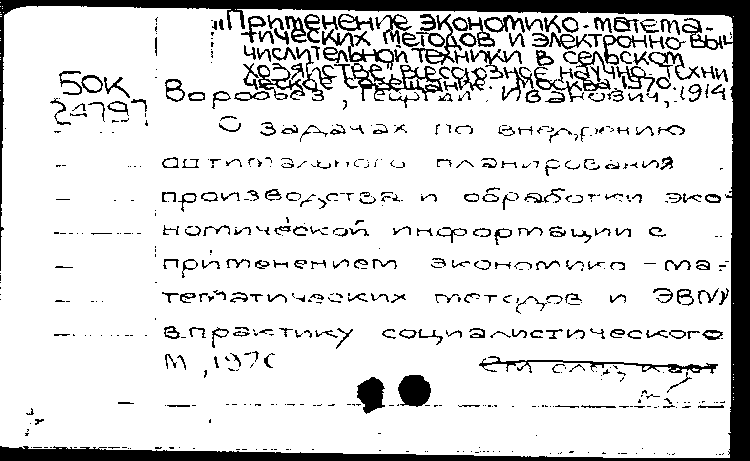 "Применение экономико-матема-
тических методов и электронно-выч
числительной техники в сельском
хозяйстве", всесоюзное научно-техни
ческое совещание. Москва, 1970.
БОК
24797
Воробьев, Георгий Иванович, 1914
О задачах по внедрению
оптимального планирования
производства и обработки эко-
номической информации с
применением экономико-ма-
тематических методов и ЭВМ
в практику социалистического
М, 1970
См след карт